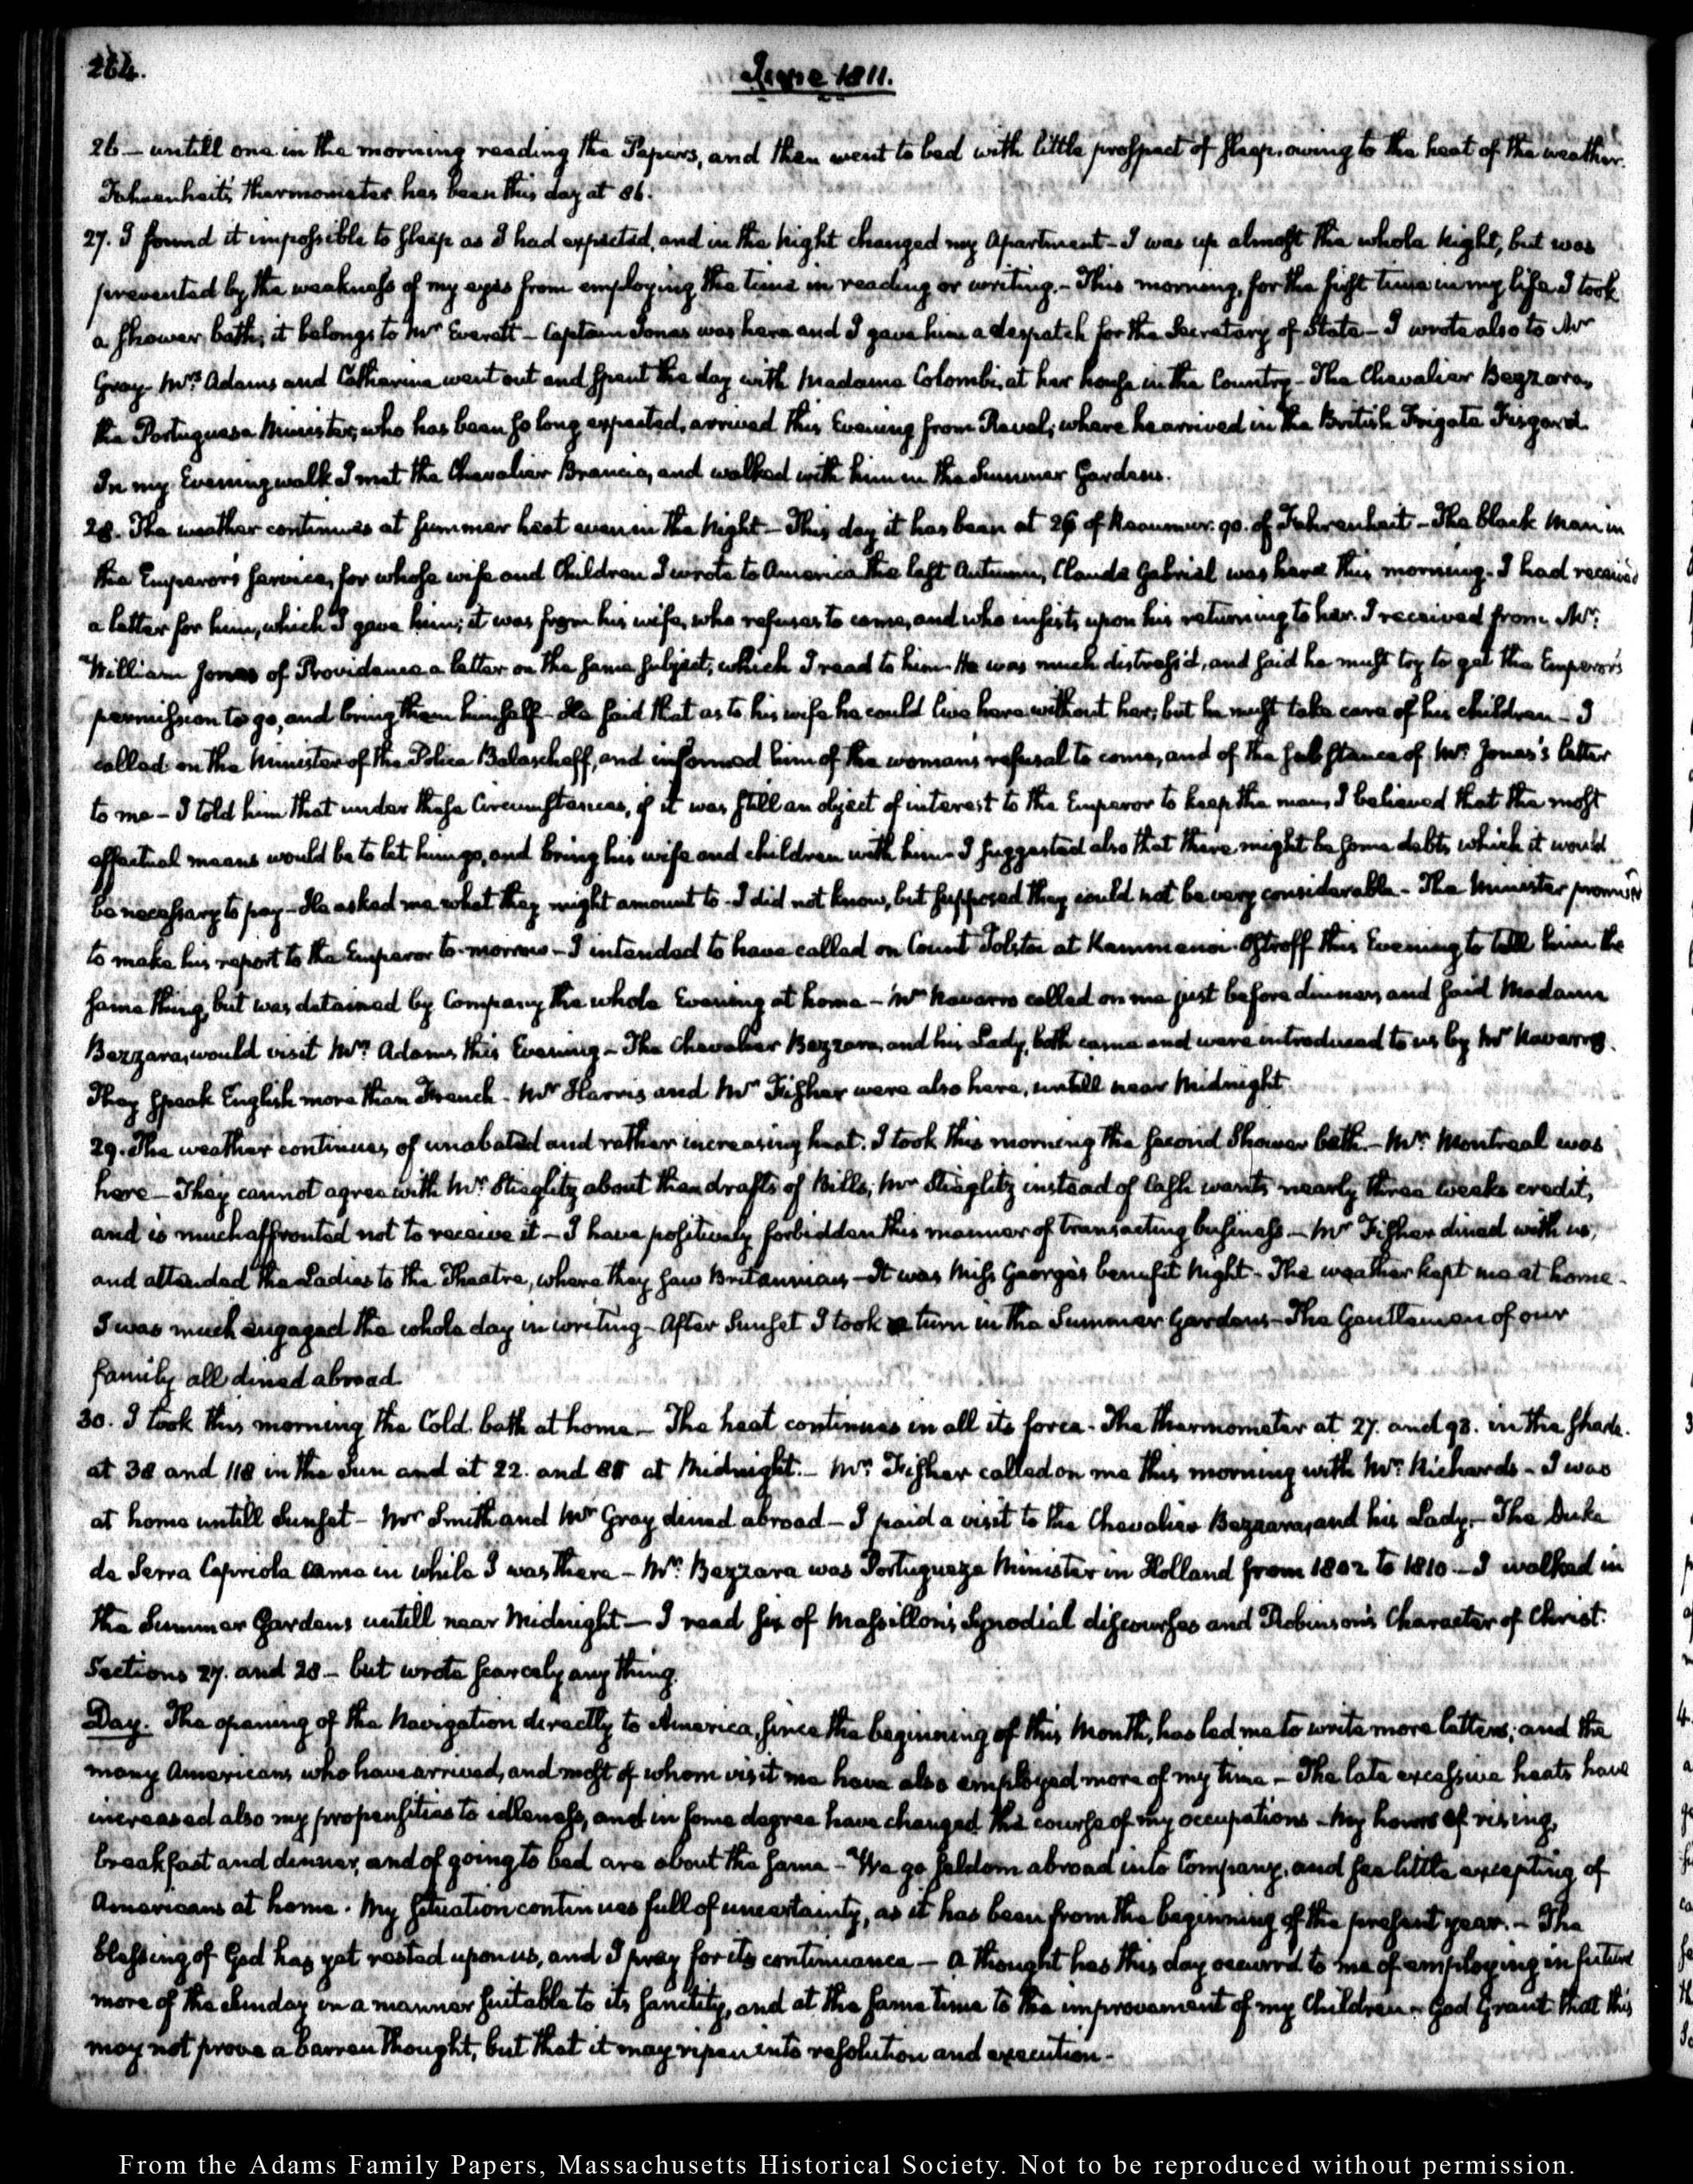 264.
June 1811.
26 — untill one in the morning reading the Papers, and then went to bed with little prospect of sleep, owing to the heat of the weather.
Fahrenheit's thermometer has been this day at 86.
27. I found it impossible to sleep as I had expected, and in the Night changed my Apartment - I was up almost the whole Night, but was
prevented by the weakness of my eyes from employing the time in reading or writing. - This morning, for the first time in my life I took
a shower bath; it belongs to Mr Everett - Captain Jones was here and I gave him a despatch for the Secretary of State - I wrote also to Mr
Gray - Mrs Adams and Catharine went out and spent the day with Madame Colombi, at her house in the Country - The Chevalier Bezzara,
the Portuguese Minister, who has been so long expected, arrived this Evening from Reval, where he arrived in the British Frigate Fisgard.
In my Evening walk I met the Chevalier Brancia, and walked with him in the Summer Gardens.
28. The weather continues at summer heat even in the Night - This day it has been at 26 of Reaumur. 90. of Fahrenheit - The black Man in
the Emperor's service, for whose wife and Children I wrote to America the last Autumn, Claude Gabriel was here this morning - I had receiv'd
a letter for him, which I gave him; it was from his wife, who refuses to come, and who insists upon his returning to her. I received from Mr.
William Jones of Providence a letter on the same subject, which I read to him - He was much distress'd, and said he must try to get the Emperor's
permission to go, and bring them himself - He said that as to his wife he could live here without her; but he must take care of his children - I
called on the Minister of the Police Balascheff, and informed him of the woman's refusal to come, and of the substance of Mr. Jones's letter
to me - I told him that under these Circumstances, if it was still an object of interest to the Emperor to keep the man, I believed that the most
effectual means would be to let him go, and bring his wife and children with him - I suggested also that there might be some debts which it would
be necessary to pay - He asked me what they might amount to - I did not know, but supposed they could not be very considerable - The Minister promis'd
to make his report to the Emperor to-morrow - I intended to have called on Count Tolstoi at Kammenoi-Ostroff this Evening to tell him the
same thing, but was detained by Company the whole Evening at home - Mr Navarro called on me just before dinner, and said Madame
Bezzara, would visit Mrs Adams this Evening - The Chevalier Bezzara, and his Lady, both came and were introduced to us by Mr Navarro.
They speak English more than French - Mr Harris and Mr Fisher were also here, untill near Midnight.
29. The weather continues of unabated and rather increasing heat. I took this morning the second Shower bath. - Mr. Montreal was
here - They cannot agree with Mr. Stieglitz about the drafts of Bills; Mr Stieglitz instead of Cash wants nearly three weeks credit,
and is much affronted not to receive it - I have positively forbidden this manner of transacting business. - Mr Fisher dined with us,
and attended the Ladies to the Theatre, where they saw Britannicus - It was Miss George's benefit Night - The weather kept me at home -
I was much engaged the whole day in writing - After Sunset I took a turn in the Summer Gardens - The Gentlemen of our
family all dined abroad.
30. I took this morning the Cold bath at home - The heat continues in all its force - The thermometer at 27. and 93. in the shade.
at 38 and 118 in the Sun and at 22. and at Midnight. - Mr. Fisher called on me this morning with Mr. Richards - I was
at home untill Sunset - Mr Smith and Mr Gray dined abroad - I paid a visit to the Chevalier Bezzara, and his Lady - The Duke
de Serra Capriola came in while I was there - Mr. Bezzara was Portugueze Minister in Holland from 1802 to 1810 - I walked in
the Summer Gardens untill near Midnight - I read six of Massillon's Synodial discourses and Robinson's Character of Christ.
Sections 27. and 28 - but wrote scarcely any thing.
Day. The opening of the Navigation directly to America, since the beginning of this Month, has led me to write more letters; and the
many Americans who have arrived, and most of whom visit me have also employed more of my time - The late excessive heats have
increased also my propensities to idleness, and in some degree have changed the course of my occupations - My hours of rising,
breakfast and dinner, and of going to bed are about the same - We go seldom abroad into Company, and see little excepting of
Americans at home. My situation continues full of uncertainty, as it has been from the beginning of the present year. - The
blessing of God has yet rested upon us, and I pray for its continuance - A thought has this day occurr'd to me of employing in future
more of the Sunday in a manner suitable to its sanctity, and at the same time to the improvement of my Children - God Grant that this
may not prove a barren thought, but that it may ripen into resolution and execution -
From the Adams Family Papers, Massachusetts Historical Society. Not to be reproduced without permission.